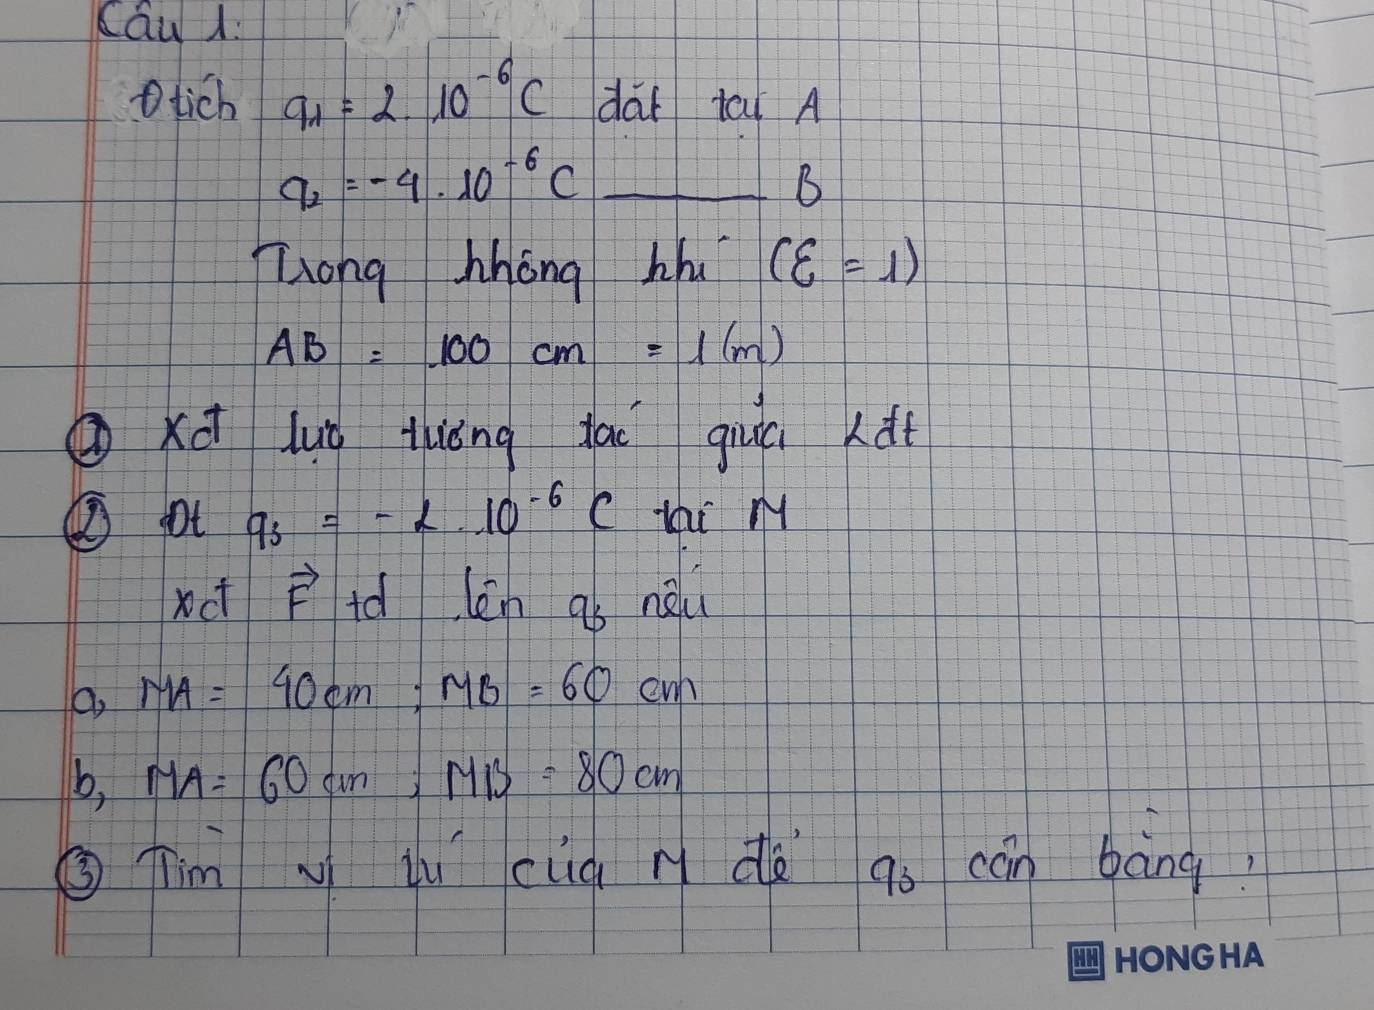 Câu 1:
Đtích q₁ = 2.10⁻⁶C đặt tại A
q₂ = -4.10⁻⁶C ——— B
Trong không khí (ε = 1)
AB = 100 cm = 1(m)
① Xđ lực tương tác giữa 2đt
② Đt q₃ = -2.10⁻⁶ C tại M
xđ F⃗ td lên q₃ nếu
a, MA = 40cm ; MB = 60 cm
b, MA = 60 cm ; MB = 80cm
③ Tìm vị trí của M để q₃ cân bằng ?
HH HONG HA